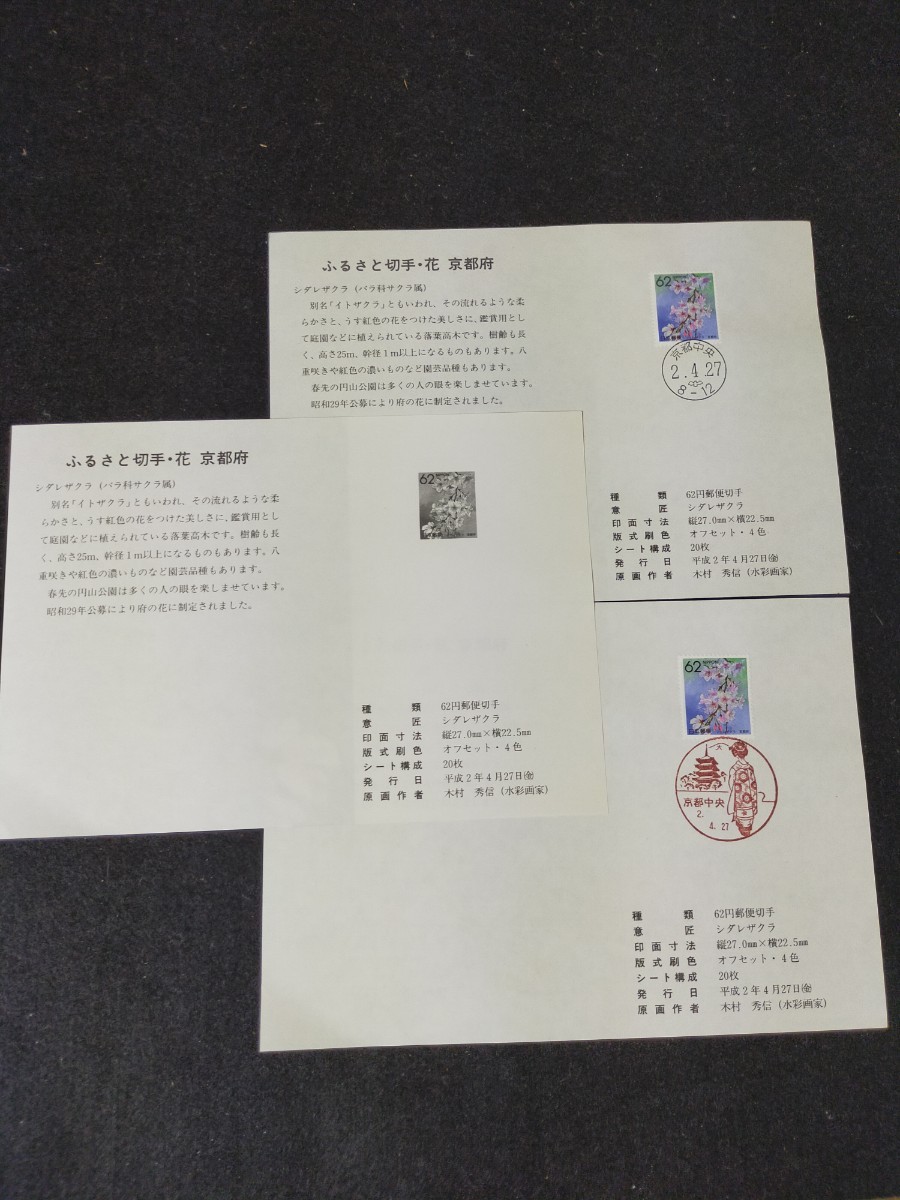 ふるさと切手・花 京都府
シダレザクラ (バラ科サクラ属)
別名「イトザクラ」ともいわれ、その流れるような柔
らかさと、うす紅色の花をつけた美しさに、鑑賞用とし
て庭園などに植えられている落葉高木です。樹齢も長
く、高さ25m、幹径1m以上になるものもあります。八
重咲きや紅色の濃いものなど園芸品種もあります。
春先の円山公園は多くの人の眼を楽しませています。
昭和29年公募により府の花に制定されました。
62 NIPPON
日本郵便
京都中央
2.4.27
8-12
種類 62円郵便切手
意匠 シダレザクラ
印面寸法 縦27.0mm×横22.5mm
版式刷色 オフセット・4色
シート構成 20枚
発行日 平成2年4月27日㈮
原画作者 木村 秀信(水彩画家)
ふるさと切手・花 京都府
シダレザクラ (バラ科サクラ属)
別名「イトザクラ」ともいわれ、その流れるような柔
らかさと、うす紅色の花をつけた美しさに、鑑賞用とし
て庭園などに植えられている落葉高木です。樹齢も長
く、高さ25m、幹径1m以上になるものもあります。八
重咲きや紅色の濃いものなど園芸品種もあります。
春先の円山公園は多くの人の眼を楽しませています。
昭和29年公募により府の花に制定されました。
62 NIPPON
日本郵便
種類 62円郵便切手
意匠 シダレザクラ
印面寸法 縦27.0mm×横22.5mm
版式刷色 オフセット・4色
シート構成 20枚
発行日 平成2年4月27日㈮
原画作者 木村 秀信(水彩画家)
62 NIPPON
日本郵便
大
京都中央
2.
4.27
種類 62円郵便切手
意匠 シダレザクラ
印面寸法 縦27.0mm×横22.5mm
版式刷色 オフセット・4色
シート構成 20枚
発行日 平成2年4月27日㈮
原画作者 木村 秀信(水彩画家)